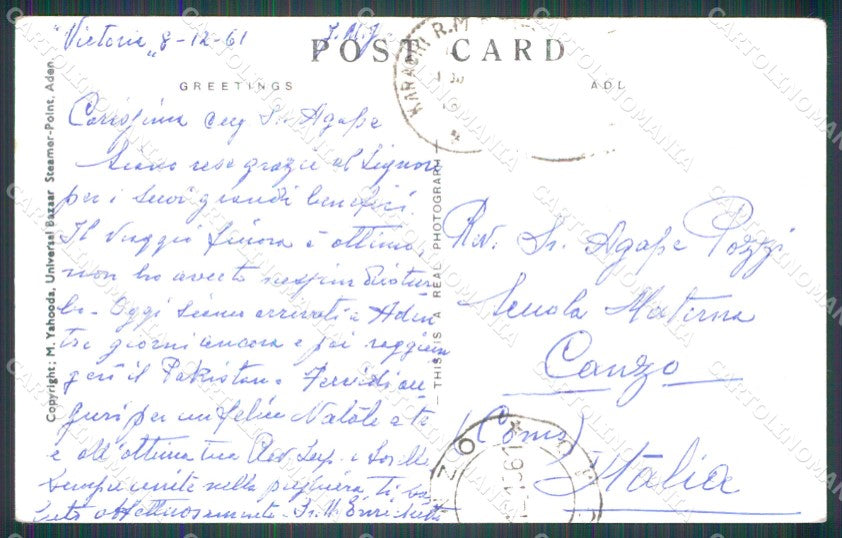 "Victoria" 8-12-61
POST CARD
GREETINGS
Carissima Sr. Agape
Siano rese grazie al Signore
per i suoi grandi benefici.
Il viaggio finora è ottimo
non ho avuto nessun distur
bo. Oggi siamo arrivati a Aden
tre giorni ancora e poi raggiun
gerò il Pakistan. Fervidi au
guri per un felice Natale a te
e all'ottima tua Rev. Sup. e Sorelle
sempre unite nella preghiera ti
affettuosamente. Sr. M. Enrichetta
Copyright: M. Yahooda, Universal Bazaar Steamer-Point, Aden.
— THIS IS A REAL PHOTOGRAPH —
KARACHI R.M
Rev. Sr. Agape Pozzi
Scuola Materna
Canzo
(Como)
Italia
CARTOLINOMANIA